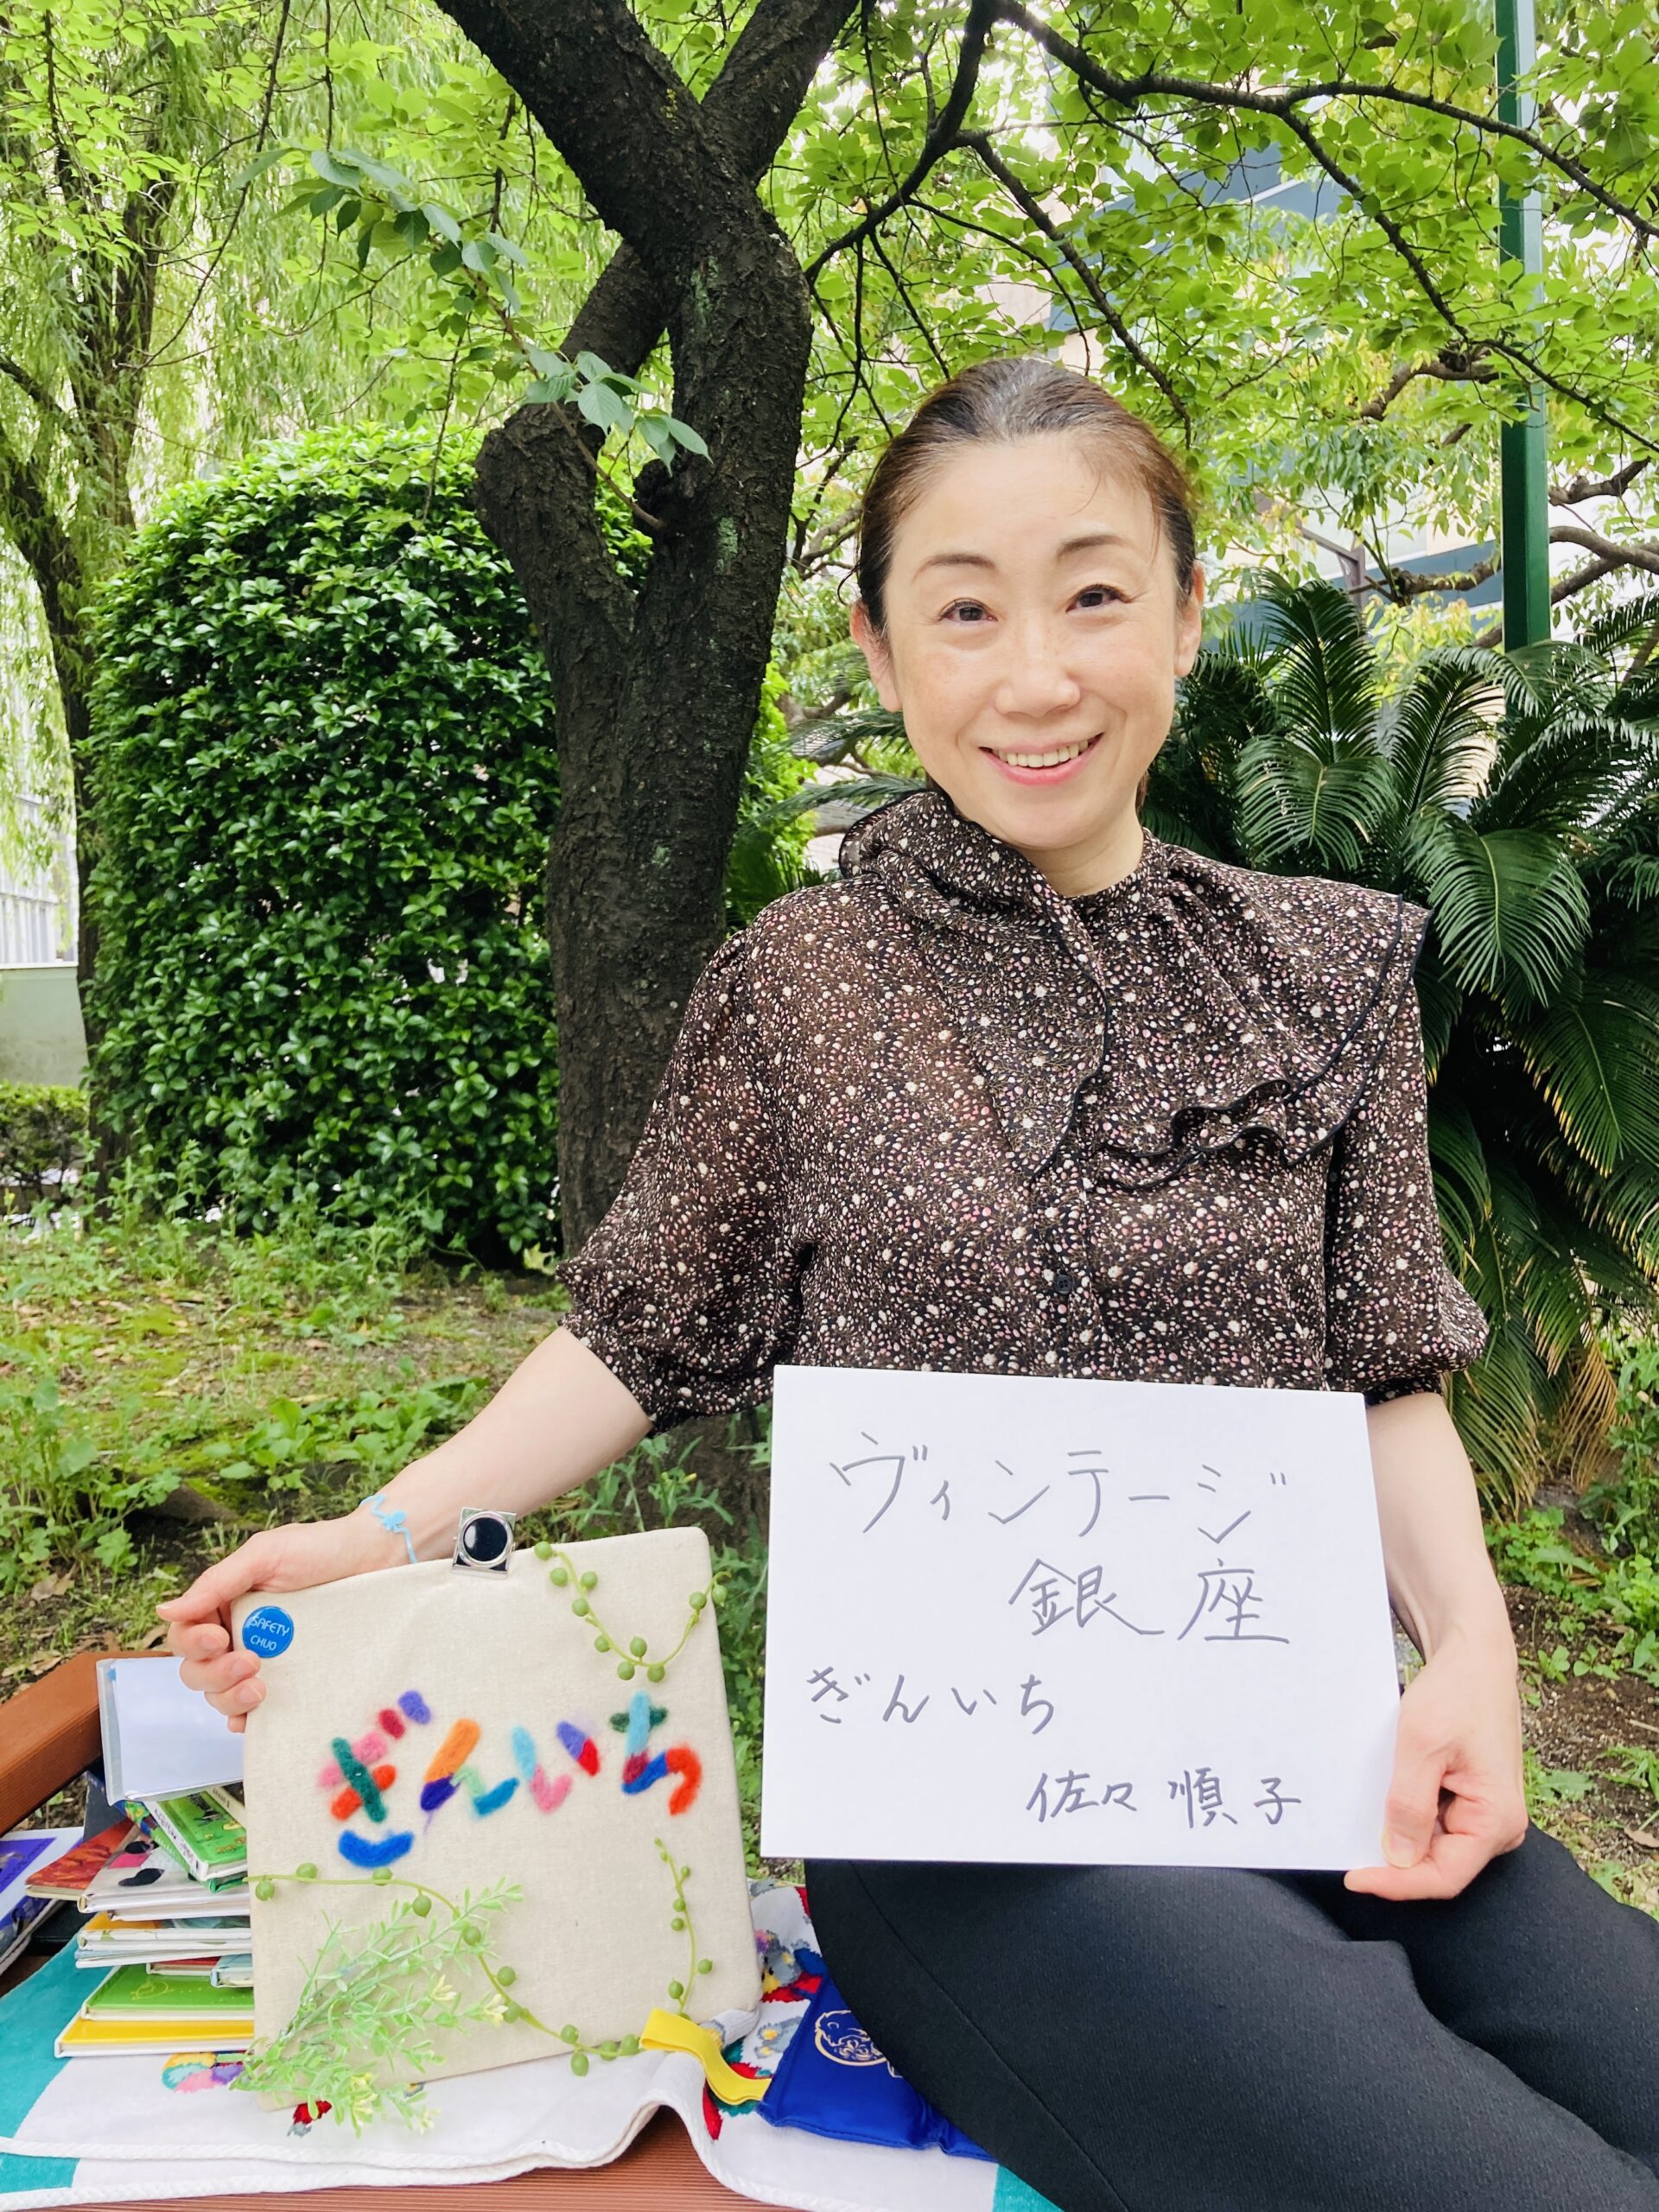 ヴィンテージ
銀座
ぎんいち
佐々順子
ぎんいち
SAFETY
CHUO